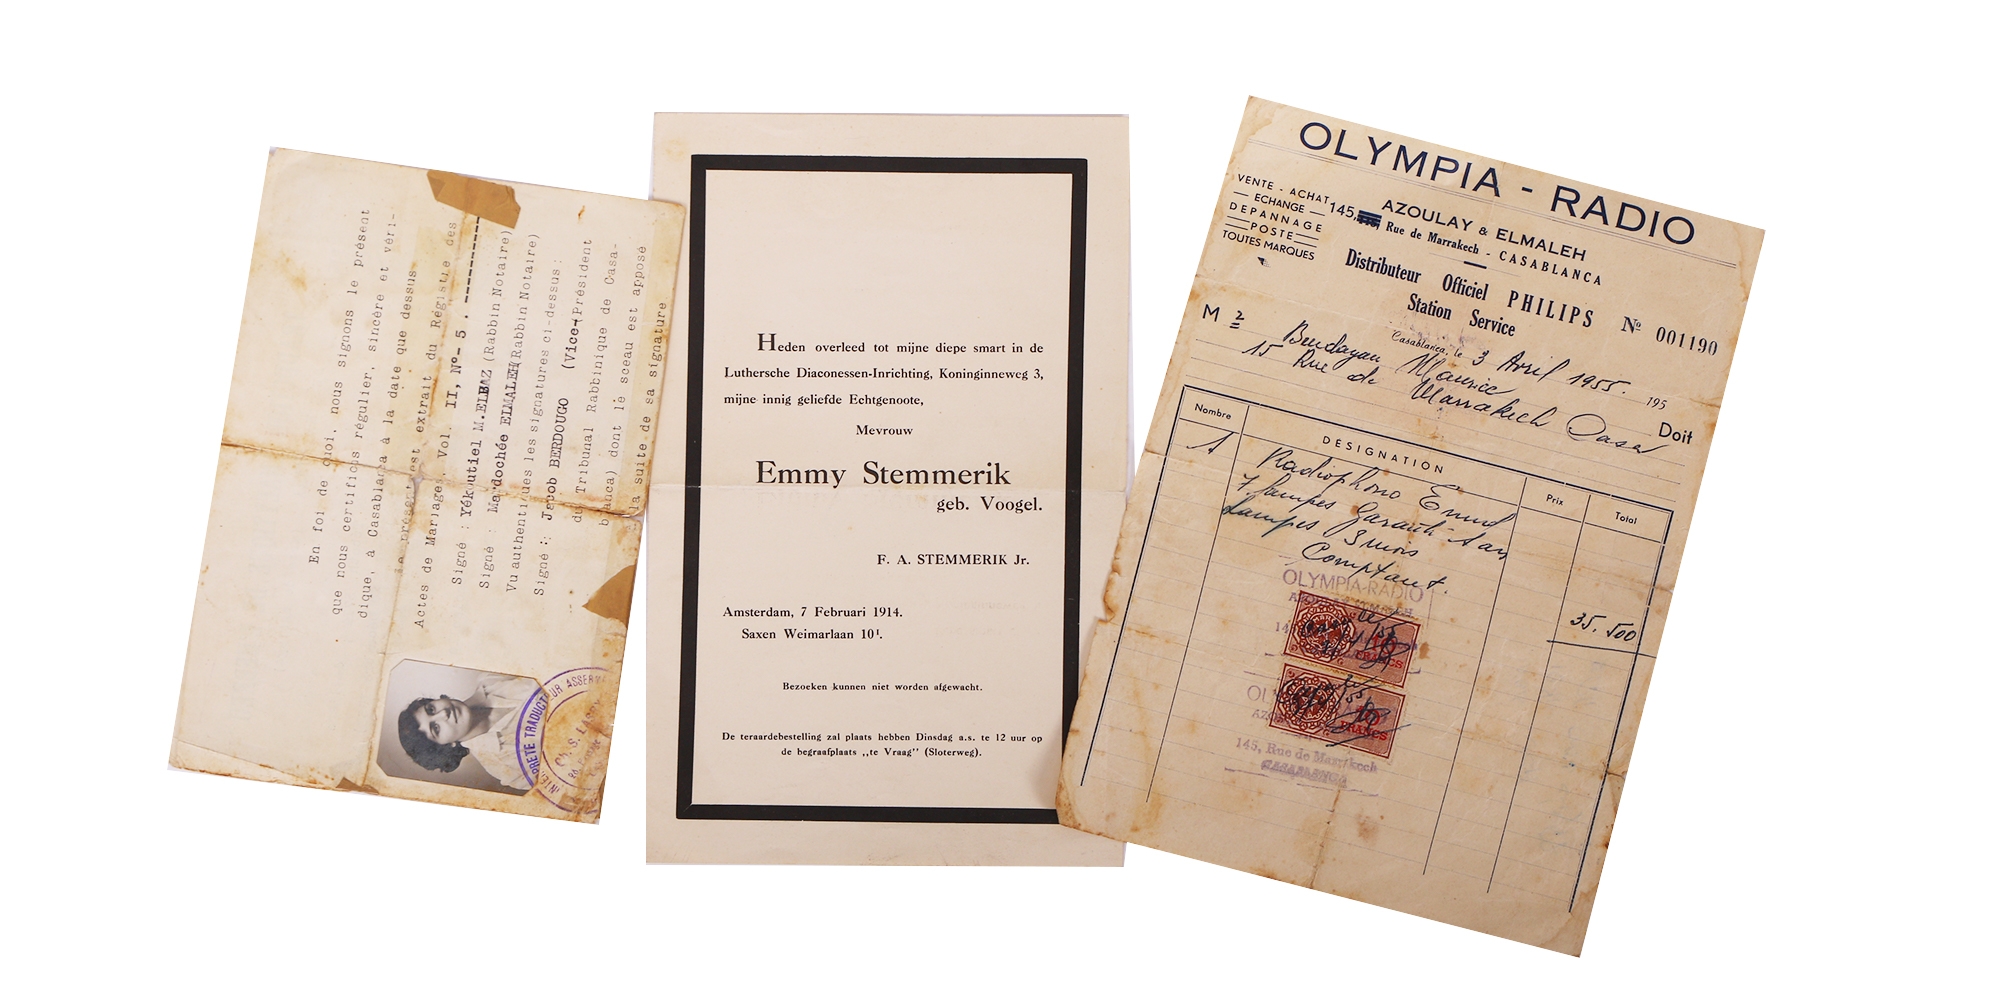 En foi de quoi, nous signons le présent
que nous certifions régulier, sincère et véri-
dique, à Casablanca à la date que dessus
Le présent est extrait du Régistre des
Actes de Mariages, Vol. II, N°- 5 . ----------
Signé : Yékoutiel M.ELBAZ (Rabbin Notaire)
Signé : Mardochée ELMALEH(Rabbin Notaire)
Vu authentiques les signatures ci-dessus :
Signé : Jacob BERDOUGO (Vice-Président
du Tribunal Rabbinique de Casa-
blanca) dont le sceau est apposé
à la suite de sa signature
INTERPRETE TRADUCTEUR ASSERM
Ch. S. LASRY
Heden overleed tot mijne diepe smart in de
Luthersche Diaconessen-Inrichting, Koninginneweg 3,
mijne innig geliefde Echtgenoote,
Mevrouw
Emmy Stemmerik
geb. Voogel.
F. A. STEMMERIK Jr.
Amsterdam, 7 Februari 1914.
Saxen Weimarlaan 10¹.
Bezoeken kunnen niet worden afgewacht.
De teraardebestelling zal plaats hebben Dinsdag a.s. te 12 uur op
de begraafplaats „te Vraag” (Sloterweg).
OLYMPIA - RADIO
VENTE - ACHAT
ECHANGE
DEPANNAGE
POSTE
TOUTES MARQUES
AZOULAY & ELMALEH
145, Rue de Marrakech - CASABLANCA
Distributeur Officiel PHILIPS
Station Service
N° 001190
Casablanca, le 3 Avril 1955. 195
M r Bendayan Maurice
15 Rue de Marrakech Casa
Doit
Nombre
DESIGNATION
Prix
Total
1 Radiophono
7 lampes Garantie 1 an
Lampes 3 mois
Comptant.
35.500
OLYMPIA-RADIO
10
FRANCS
10
FRANCS
145, Rue de Marrakech
CASABLANCA